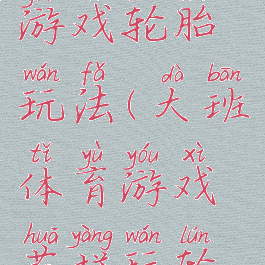 游戏轮胎
wán fǎ dà bān
玩法(大班
tǐ yù yóu xì
体育游戏
huā yàng wán lún
花样玩轮